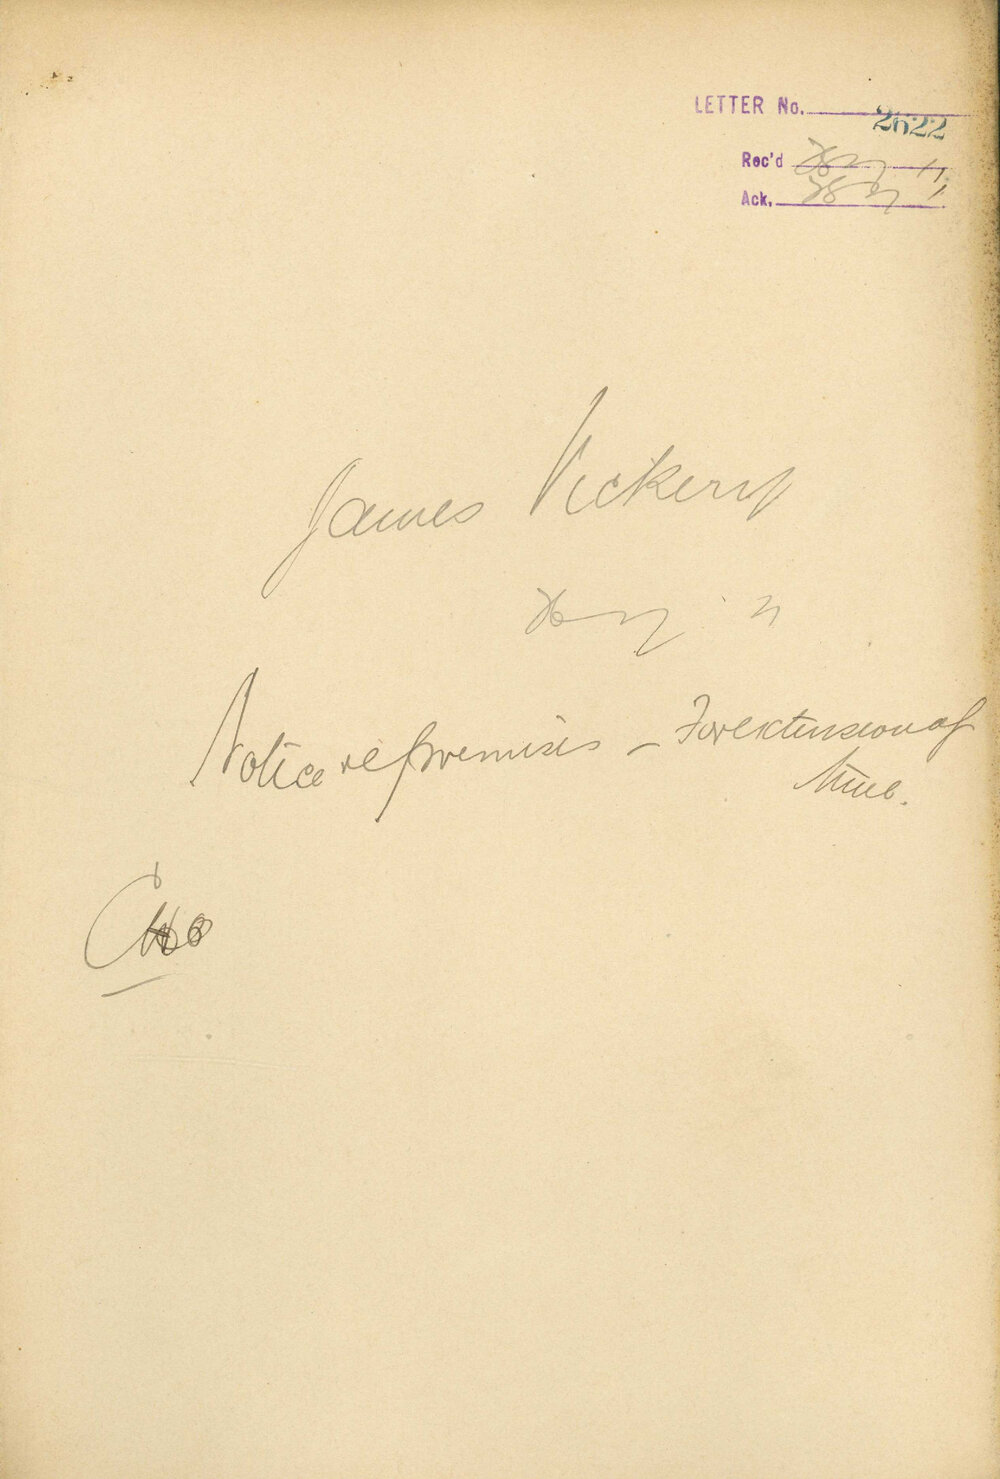 LETTER No. 2622
Rec'd
Ack.
James Vickery
Notice re premises - For extension of
time.